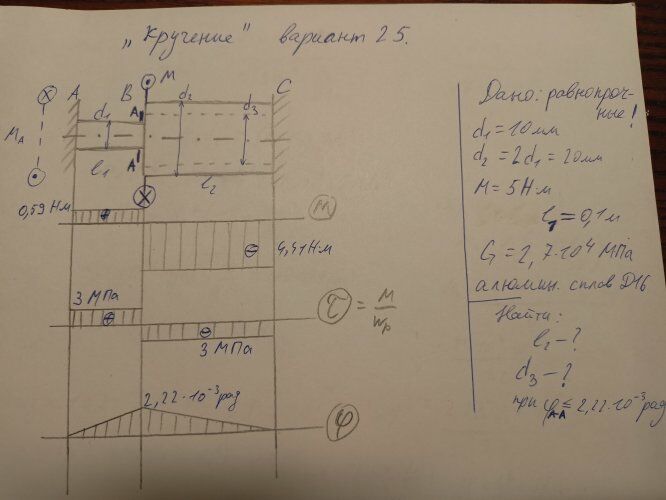 „Кручение" вариант 25.
M
A
B
C
d₁
d₂
d₃
A
A'
M_A
l₁
l₂
0,59 Нм
⊕
M
⊖
4,41 Нм
3 МПа
⊕
τ = M/Wρ
⊖
3 МПа
2,22·10⁻³ рад
φ
Дано: равнопроч-
ные!
d₁ = 10 мм
d₂ = 2d₁ = 20 мм
M = 5 Нм
l₁ = 0,1 м
G = 2,7·10⁴ МПа
алюмин. сплав Д16
Найти:
l₂ - ?
d₃ - ?
при φ_A-A ≤ 2,22·10⁻³ рад